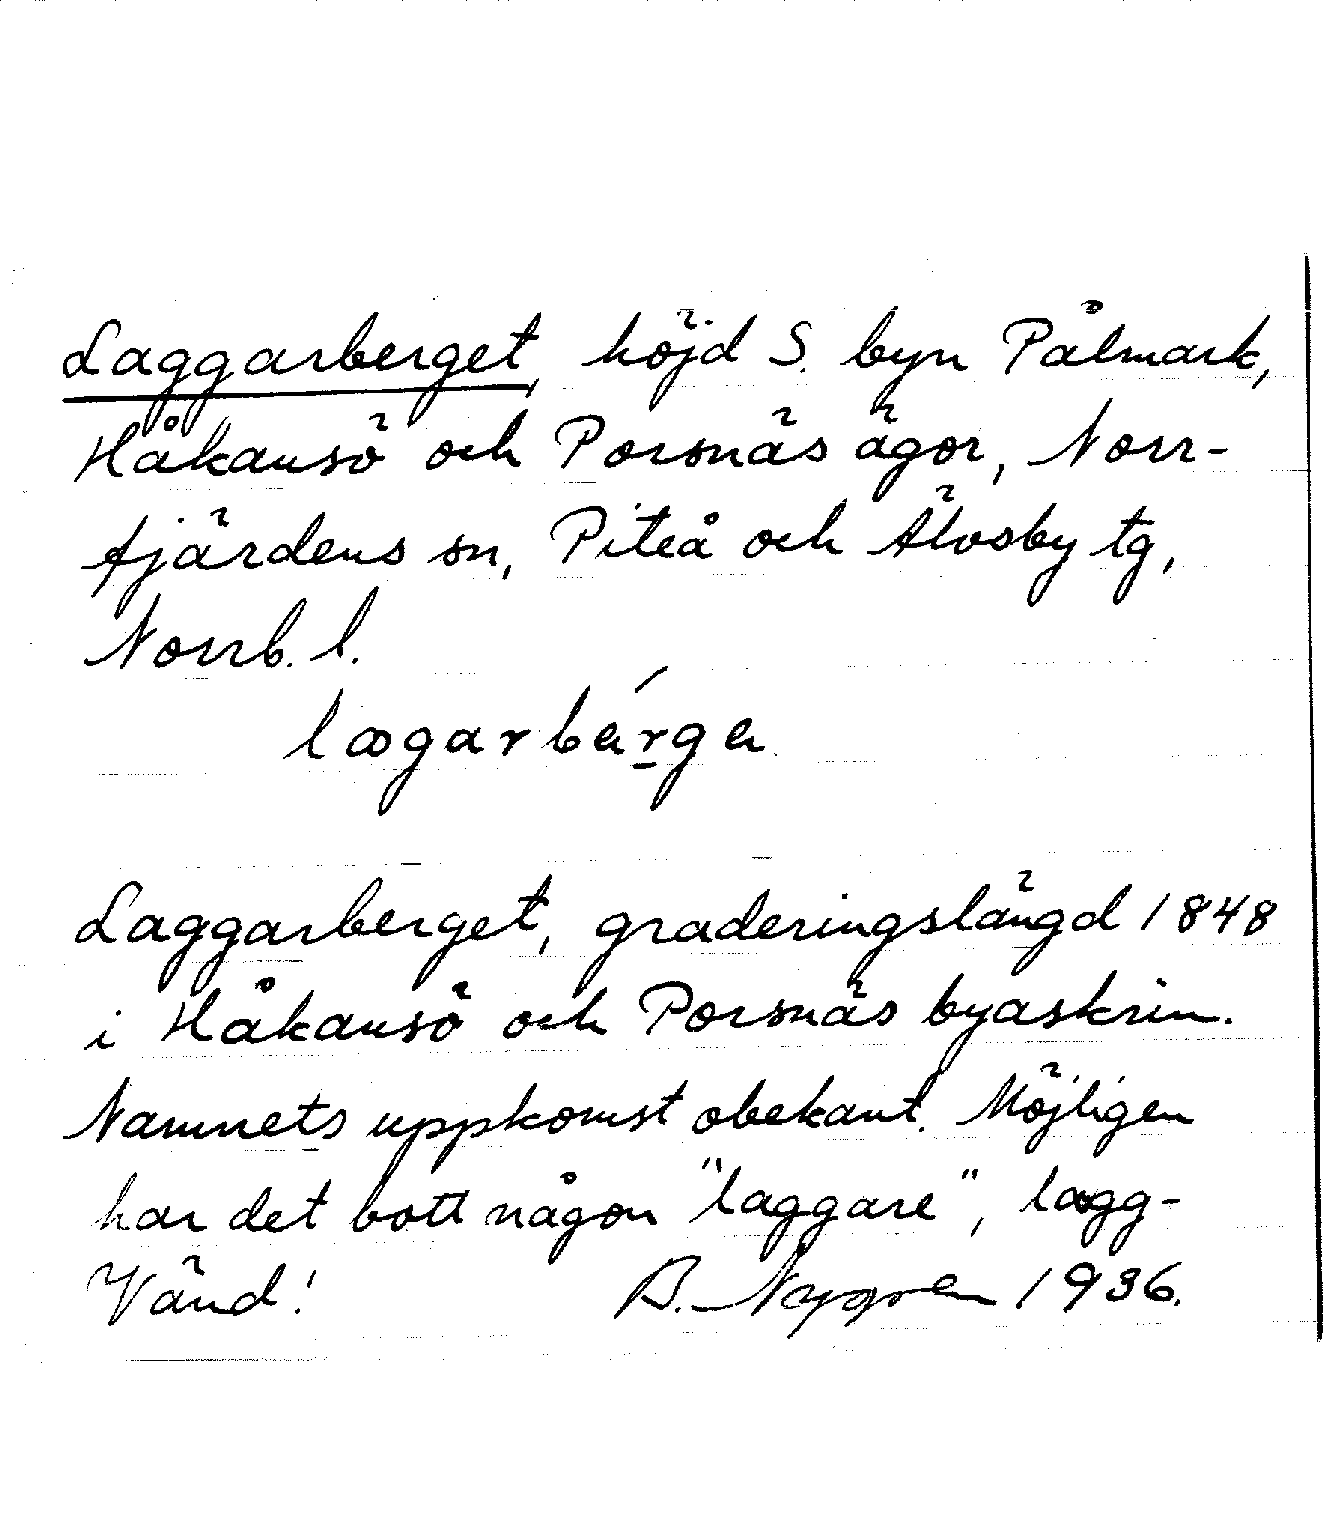 Laggarberget, höjd S. byn Pålmark,
Håkansö och Porsnäs ägor, Norr-
fjärdens sn, Piteå och Älvsby tg,
Norrb. l.
lagarbérga
Laggarberget, graderingslängd 1848
i Håkansö och Porsnäs byaskrin.
Namnets uppkomst obekant. Möjligen
har det bott någon "laggare", lagg-
Vänd! B. Nygren 1936.